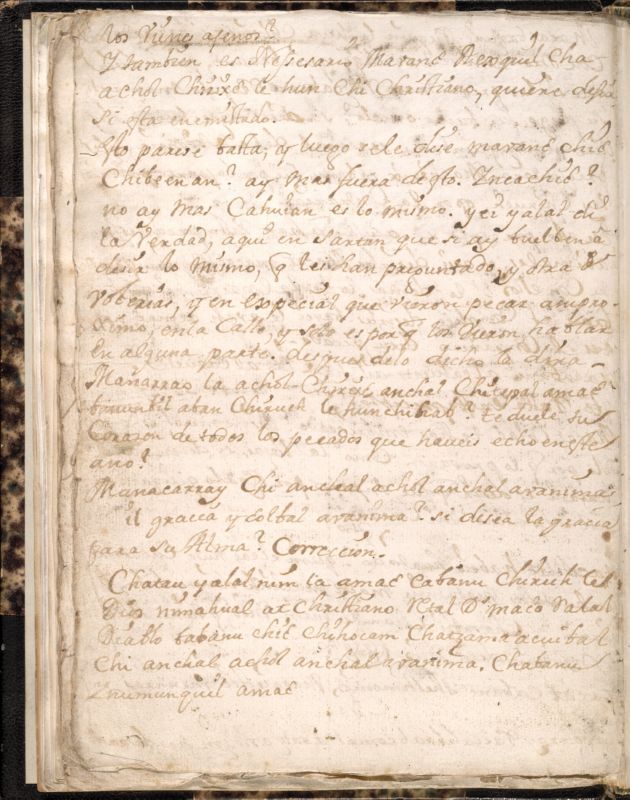 los Vnos ajenos?
Ytambien es Nessesario Marané Rexquil cha
achol Chirixé le hun Chi Christiano, quiere desir
si esta enemistado.
esto parese basta, y luego sele dise marané chic
Chibeenan? ay mas fuera desto. Incachic?
no ay mas Cahuian es lo mismo. yei yalal di
la Verdad, aqui en sartan que si ay buelben a
desir lo mismo, q les han preguntado, y otra s
boberias, y en especial que vieron pecar a mpro-
ximo, en la Calle, y solo es por q los vieron hablar
en alguna parte. despues delo dicho la dira
Manarrao la achol Chirix anchal Chixpal amac
banuntil aban Chiruch le hunchihab? te duele su
Corason de todos los pecados que haveis echo en este
año?
Manacarray Chi anchal achol anchal aranima
il gracia y Colbal aranima? si desea la gracia
para su Alma? Correccion.
Chatau yalal nim la amac Cabanu Chiruch lel
Dios nimahual at Christiano
Diablo tabanu chic Chihocam Chatzama acuibal
Chi anchal achol anchal aranima. Chabanu
Inumunquil amac